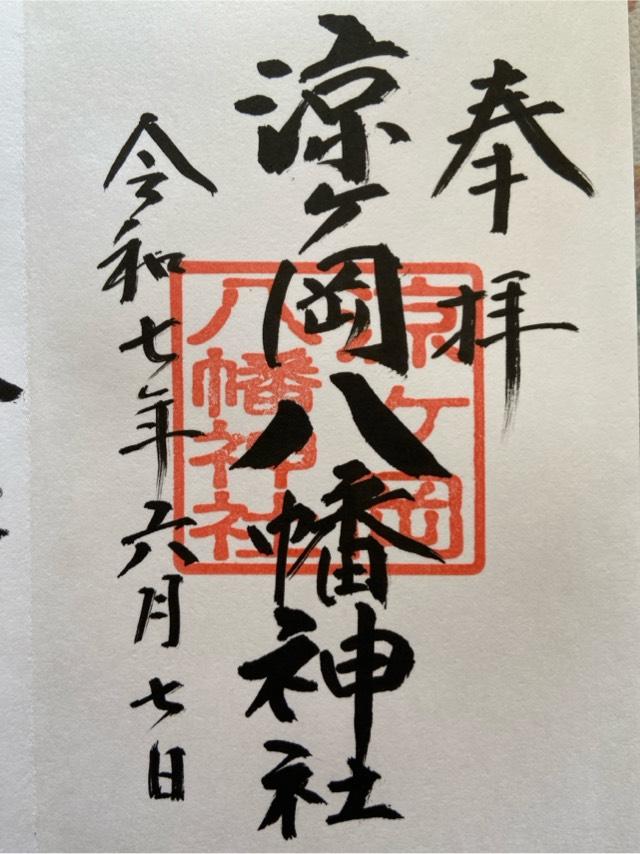 奉拝
涼ヶ岡八幡神社
涼ヶ岡
八幡神社
令和七年六月七日